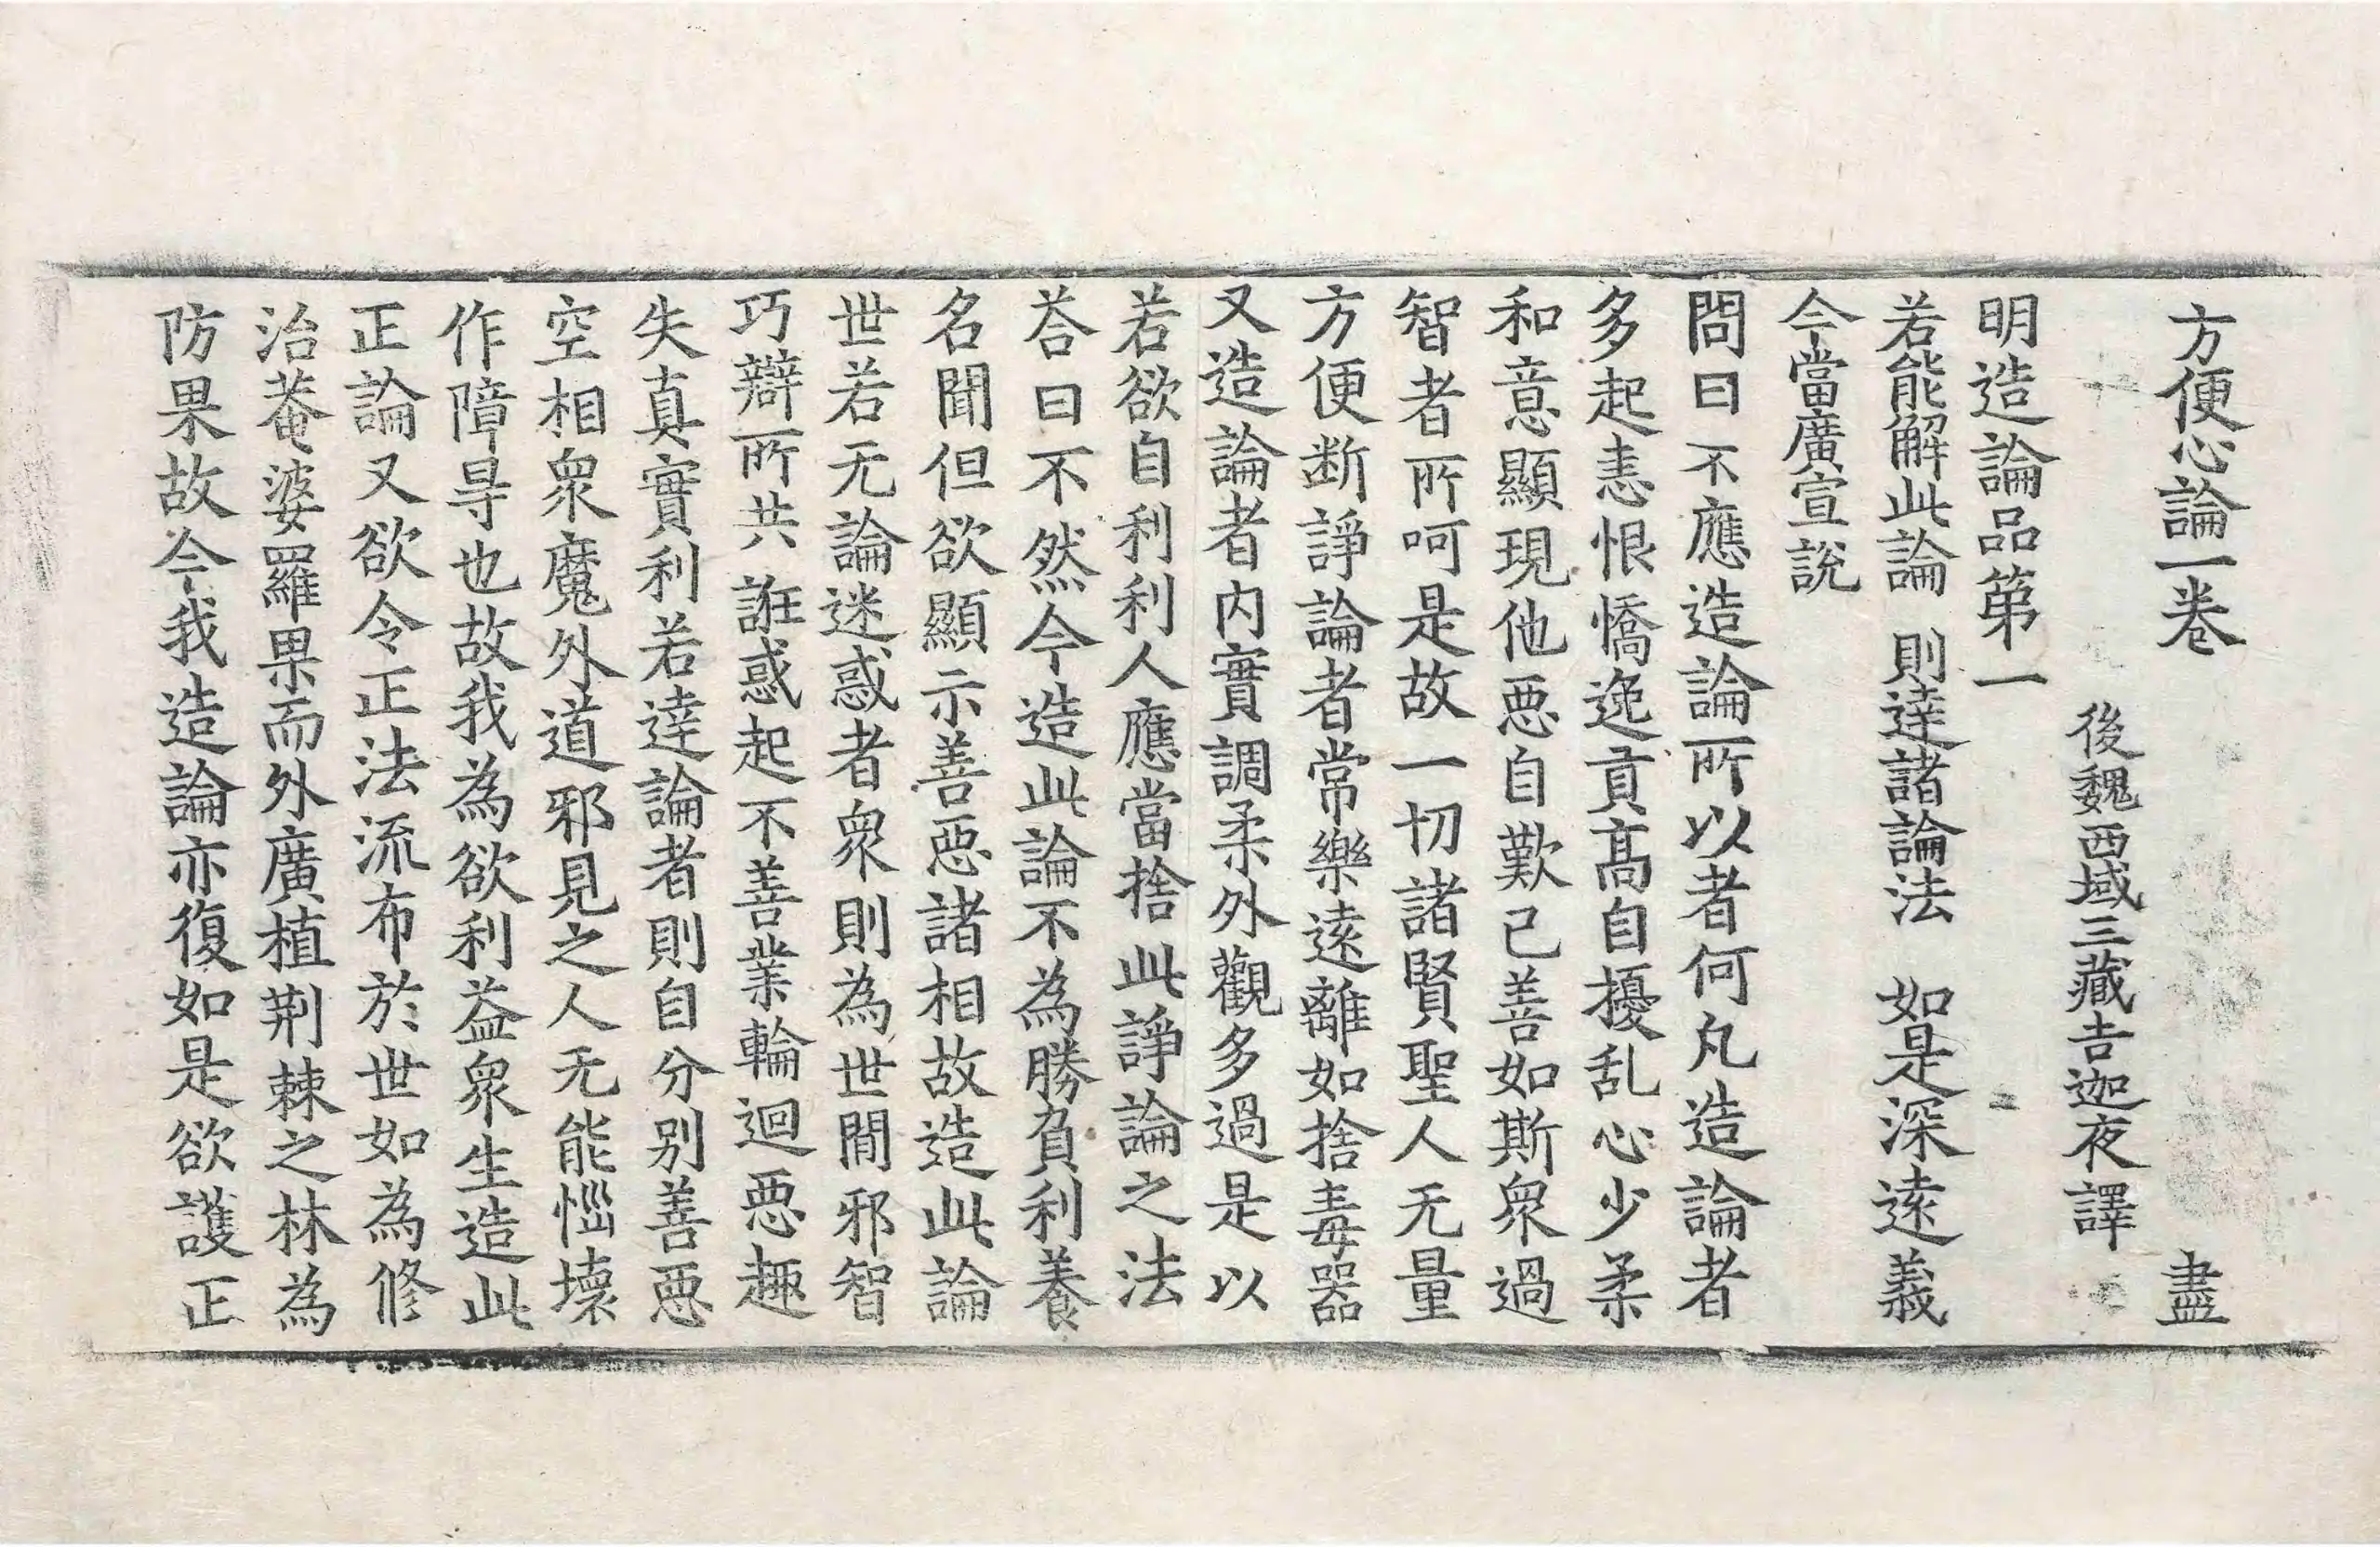 方便心論一卷　盡
後魏西域三藏吉迦夜譯
明造論品第一
若能解此論　則達諸論法　如是深遠義
今當廣宣說
問曰不應造論所以者何凡造論者
多起恚恨憍逸貢髙自擾乱心少柔
和意顯現他恶自歎己善如斯衆過
智者所呵是故一切諸賢聖人无量
方便断諍論者常樂遠離如捨毒器
又造論者内實調柔外觀多過是以
若欲自利利人應當捨此諍論之法
荅曰不然今造此論不為勝負利養
名聞但欲顯示善恶諸相故造此論
世若无論迷惑者衆則為世間邪智
巧辯所共誑惑起不善業輪迴恶趣
失真實利若達論者則自分别善恶
空相衆魔外道邪見之人无能惱壞
作障㝵也故我為欲利益衆生造此
正論又欲令正法流布於世如為修
治菴婆羅果而外廣植荆棘之林為
防果故今我造論亦復如是欲護正